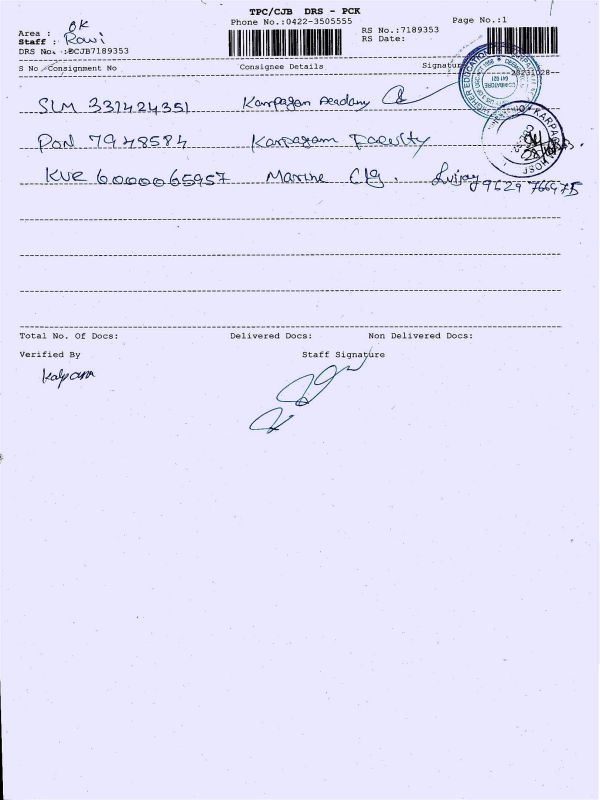 TPC/CJB DRS - PCK
Phone No.:0422-3505555
Page No.:1
RS No.:7189353
RS Date:
Area : OK
Staff : Ravi
DRS No. :BCJB7189353
S No Consignment No Consignee Details Signature
28231028--
SLM 331424351 Karpagam Academy
PON 7948584 Karpagam Faculty
KUR 6000065957 Marine Clg. 9629 766975
Total No. Of Docs: Delivered Docs: Non Delivered Docs:
Verified By Staff Signature
Kalyan